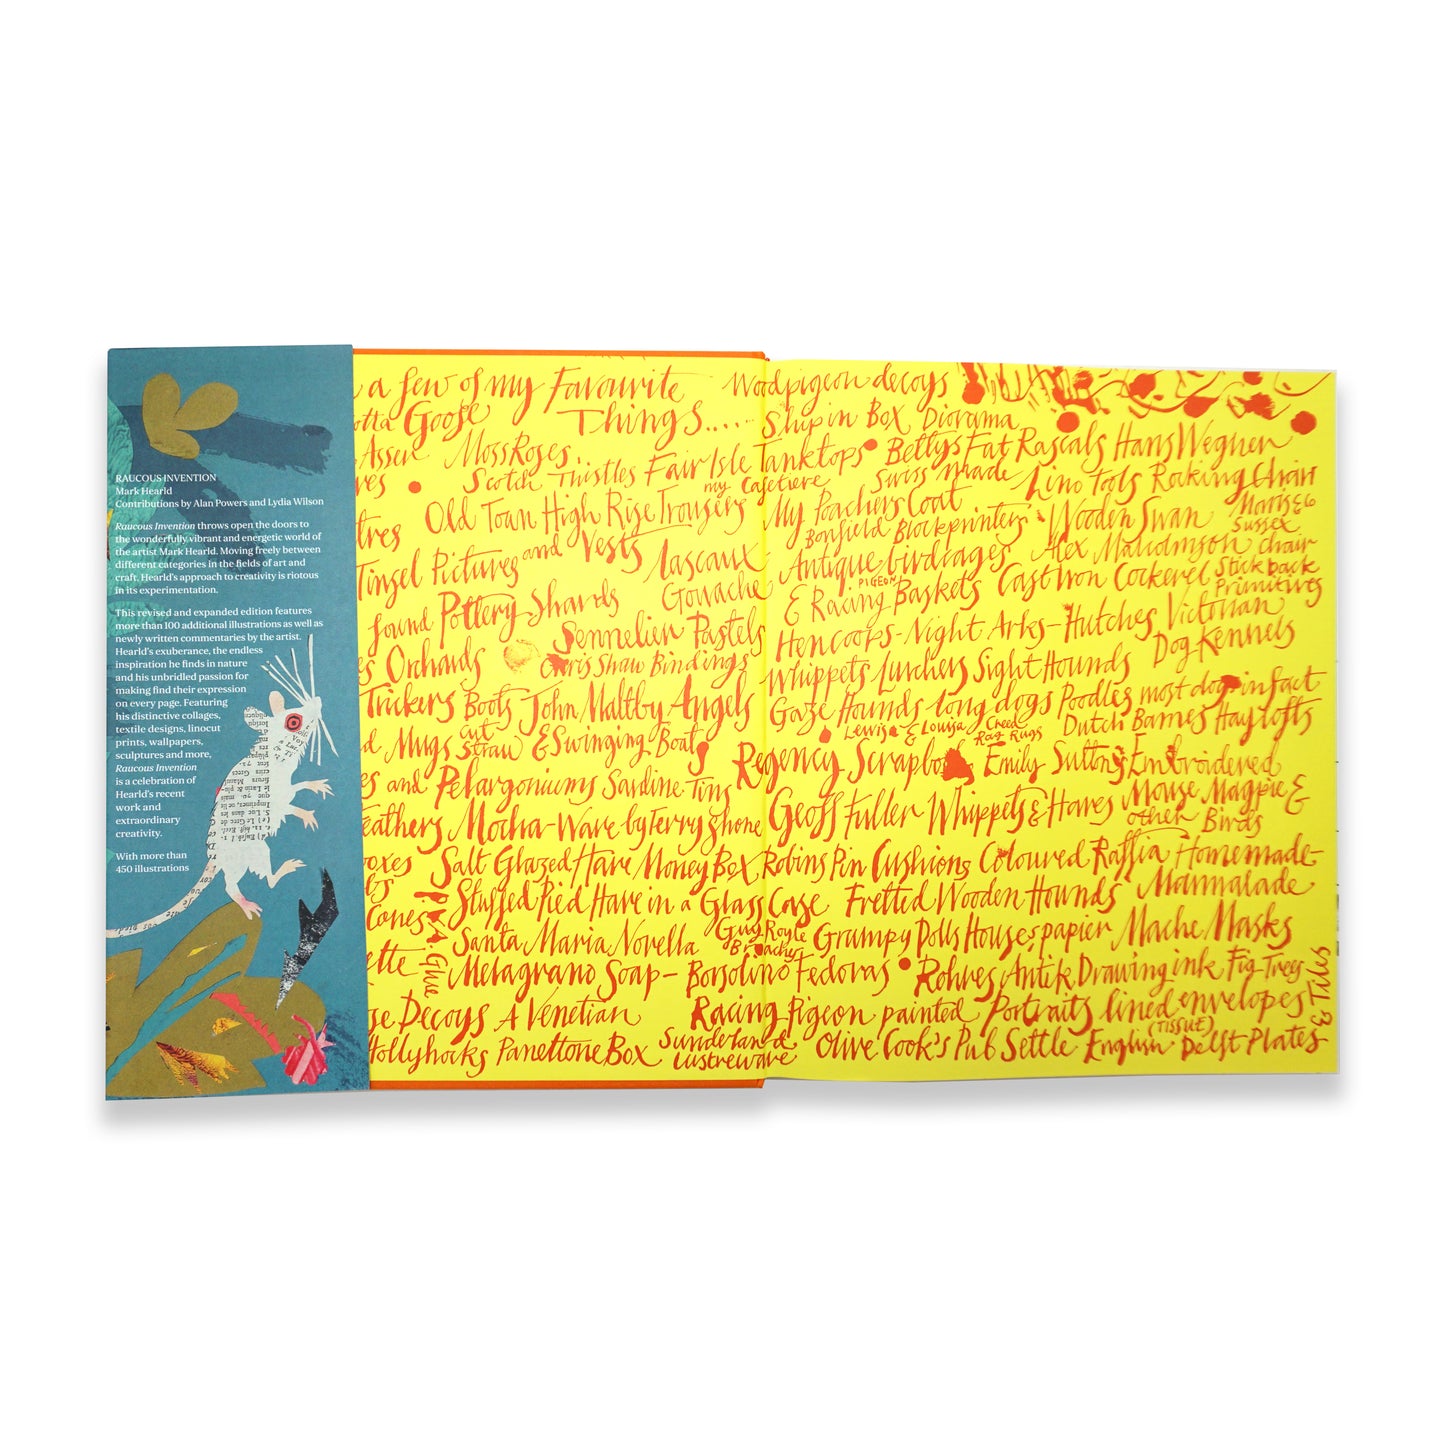 RAUCOUS INVENTION
Mark Hearld
Contributions by Alan Powers and Lydia Wilson
Raucous Invention throws open the doors to
the wonderfully vibrant and energetic world of
the artist Mark Hearld. Moving freely between
different categories in the fields of art and
craft. Hearld's approach to creativity is riotous
in its experimentation.
This revised and expanded edition features
more than 100 additional illustrations as well as
newly written commentaries by the artist.
Hearld's exuberance, the endless
inspiration he finds in nature
and his unbridled passion for
making find their expression
on every page. Featuring
his distinctive collages,
textile designs, linocut
prints, wallpapers,
sculptures and more,
Raucous Invention
is a celebration of
Hearld's recent
work and
extraordinary
creativity.
With more than
450 illustrations
a few of my Favourite
Things.....
otta Goose
Assen Moss Roses..
Scotch Thistles Fair Isle Tanktops
Old Town High Rise Trousers
and Vests
Tinsel Pictures
Lascaux
Gouache
found Pottery Shards
Sennelier Pastels
Orchards
Chris Shaw Bindings
Trickers Boots John Maltby Angels
Mugs cut Straw & Swinging Boats
and Pelargoniums Sardine Tins
eathers Mocha-Ware by Terry Shone
oxes Salt Glazed Hare Money Box
Stuffed Pied Hare in a Glass Case
Cones
P.V.A. Glue
Santa Maria Novella
Guy Royle
Broaches
ette Melagrano Soap - Borsolino Fedoras
se Decoys A Venetian
Hollyhocks Panettone Box
Sunderland
Lustreware
Woodpigeon decoys
Ship in Box Diorama
Bettys Fat Rascals Hans Wegner
my Cafetiere
Swiss made
Lino Tools Rocking Chair
My Poachers Coat
Bonfield Blockprinters'
Wooden Swan
Morris & Co
Sussex
chair
Antique birdcages Alex Malcolmson
Stick back
Primitives
& Racing PIGEON Baskets Cast Iron Cockerel
Hencoops - Night Arks - Hutches Victorian
Dog-Kennels
Whippets Lurchers Sight Hounds
Gaze Hounds long dogs Poodles most dogs in fact
Lewis & Louisa Creed
Rag Rugs
Dutch Barnes Haylofts
Regency Scrapbooks Emily Suttons Embroidered
Mouse Magpie &
other Birds
Geoff Fuller Whippets & Hares
Robins Pin Cushions Coloured Raffia Homemade-
Marmalade
Fretted Wooden Hounds
Grumpy Dolls Houses papier Mache Masks
Rohrers Antik Drawing ink Fig Trees
Racing Pigeon painted Portraits lined envelopes
(TISSUE)
Olive Cook's Pub Settle English Delft Plates
& Tiles